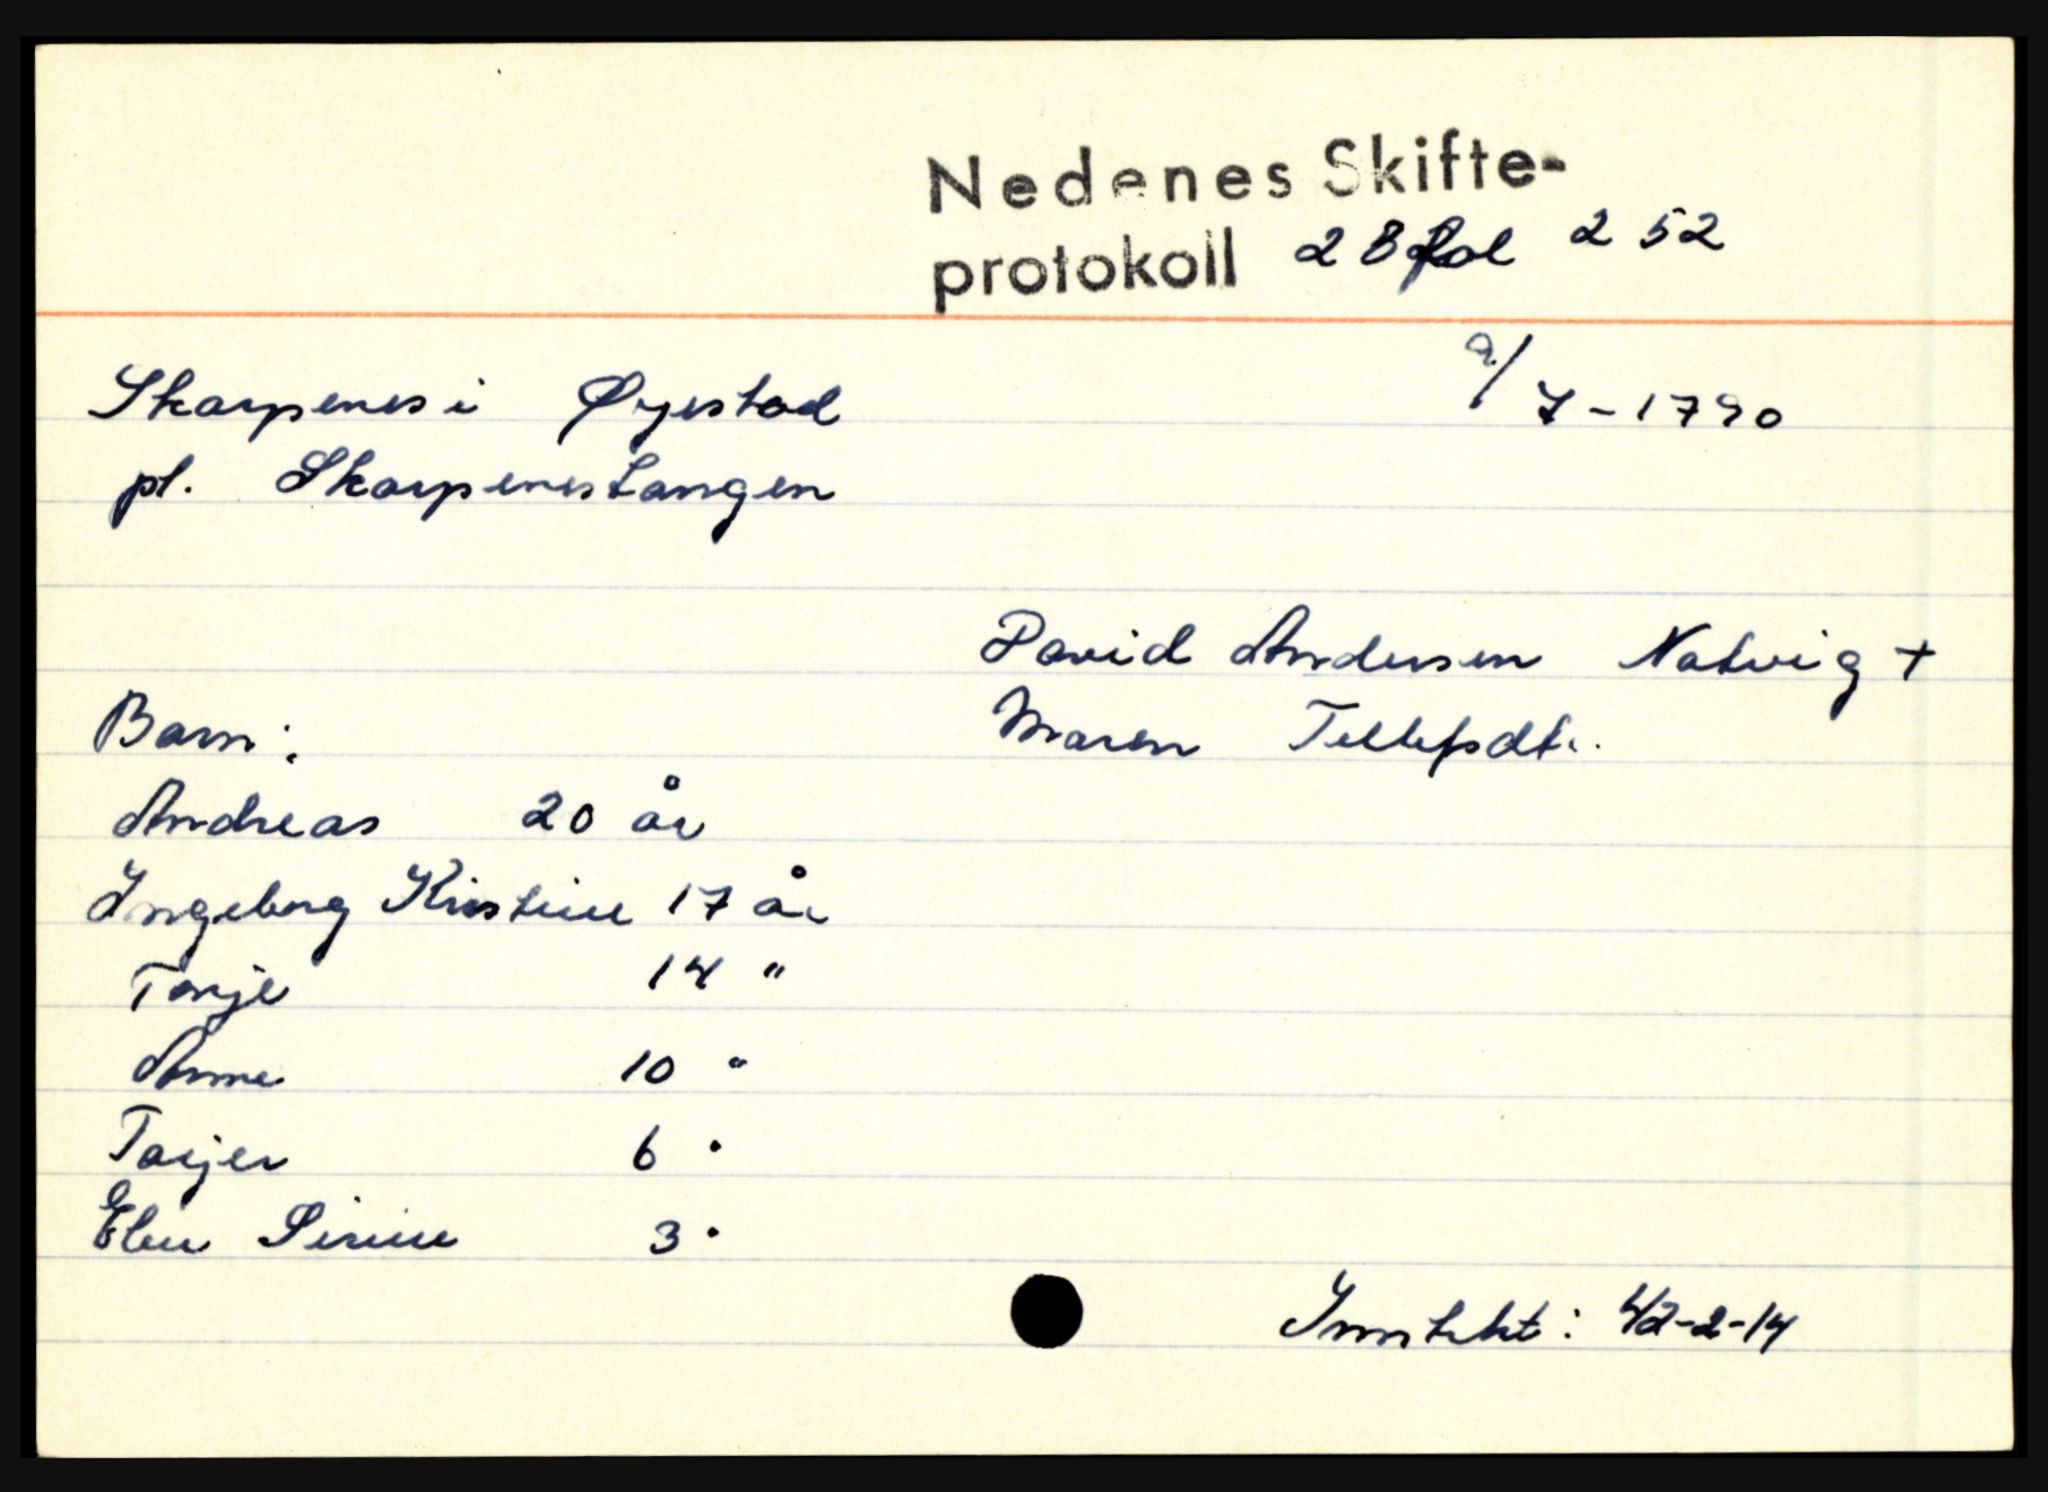 Nedenes Skifte-
protokoll 28 fol 252
9/7-1790
Skarpenes i Øyestad
pl. Skarpenestangen
David Andersen Natvig +
Maren Tellefsdt.
Barn:
Andreas 20 år
Ingeborg Kristine 17 år
Tarje 14 "
Anne 10 "
Tarjer 6 "
Elen Sirine 3 "
42-2-14